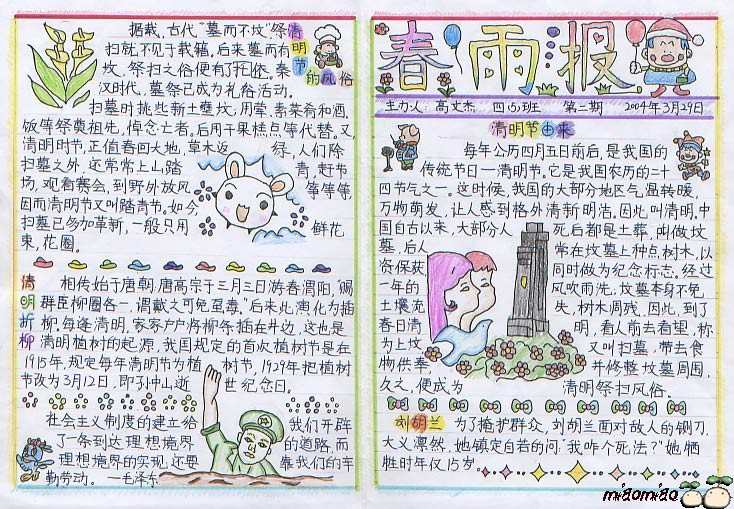 春雨报
主办人：高文杰 四(5)班 第二期 2009年3月29日
清明节由来
每年公历四月五日前后，是我国的
传统节日—清明节。它是我国农历的二十
四节气之一。这时候，我国的大部分地区气温转暖，
万物萌发，让人感到格外清新明洁。因此叫清明。中
国自古以来，大部分人死后都是土葬，叫做坟
墓，后人常在坟墓上种点树木，以
资保获同时做为纪念标志。经过
一年的风吹雨洗，坟墓本身不免
土壤流失，树木凋残。因此，到了
春日清明，看人前去看望，称
为上坟又叫扫墓。带去食
物供奉，并修整坟墓周围，
久之，便成为清明祭扫风俗。
刘胡兰
为了掩护群众，刘胡兰面对敌人的铡刀，
大义凛然，她镇定自若的问“我咋个死法？”她牺
牲时年仅15岁。
清明节的风俗
据载，古代“墓而不坟”祭
扫就不见于载籍，后来墓而有
坟，祭扫之俗便有了托依。秦
汉时代，墓祭已成为礼俗活动。
扫墓时挑些新土壅坟，用荤、素菜肴和酒、
饭等祭奠祖先，悼念亡者。后用干果糕点等代替。又，
清明时节，正值春回大地，草木返绿，人们除
扫墓之外，还常常上山踏青，赶节
场，观看赛会，到野外放风筝等等，
因而清明节又叫踏青节。如今，
扫墓已多加革新，一般只用鲜花
束，花圈。
清明折柳
相传始于唐朝，唐高宗于三月三日游春渭阳，“赐
群臣柳圈各一，谓戴之可免虿毒。”后来此演化为插
柳，每逢清明，家家户户将柳条插在斗边，这也是
清明植树的起源，我国规定的首次植树节是在
1915年，规定每年清明节为植树节，1929年把植树
节改为3月12日，即孙中山逝世纪念日。
社会主义制度的建立给我们开辟
了一条到达理想境界的道路，而
理想境界的实现，还要靠我们的辛
勤劳动。—毛泽东
miaomiao